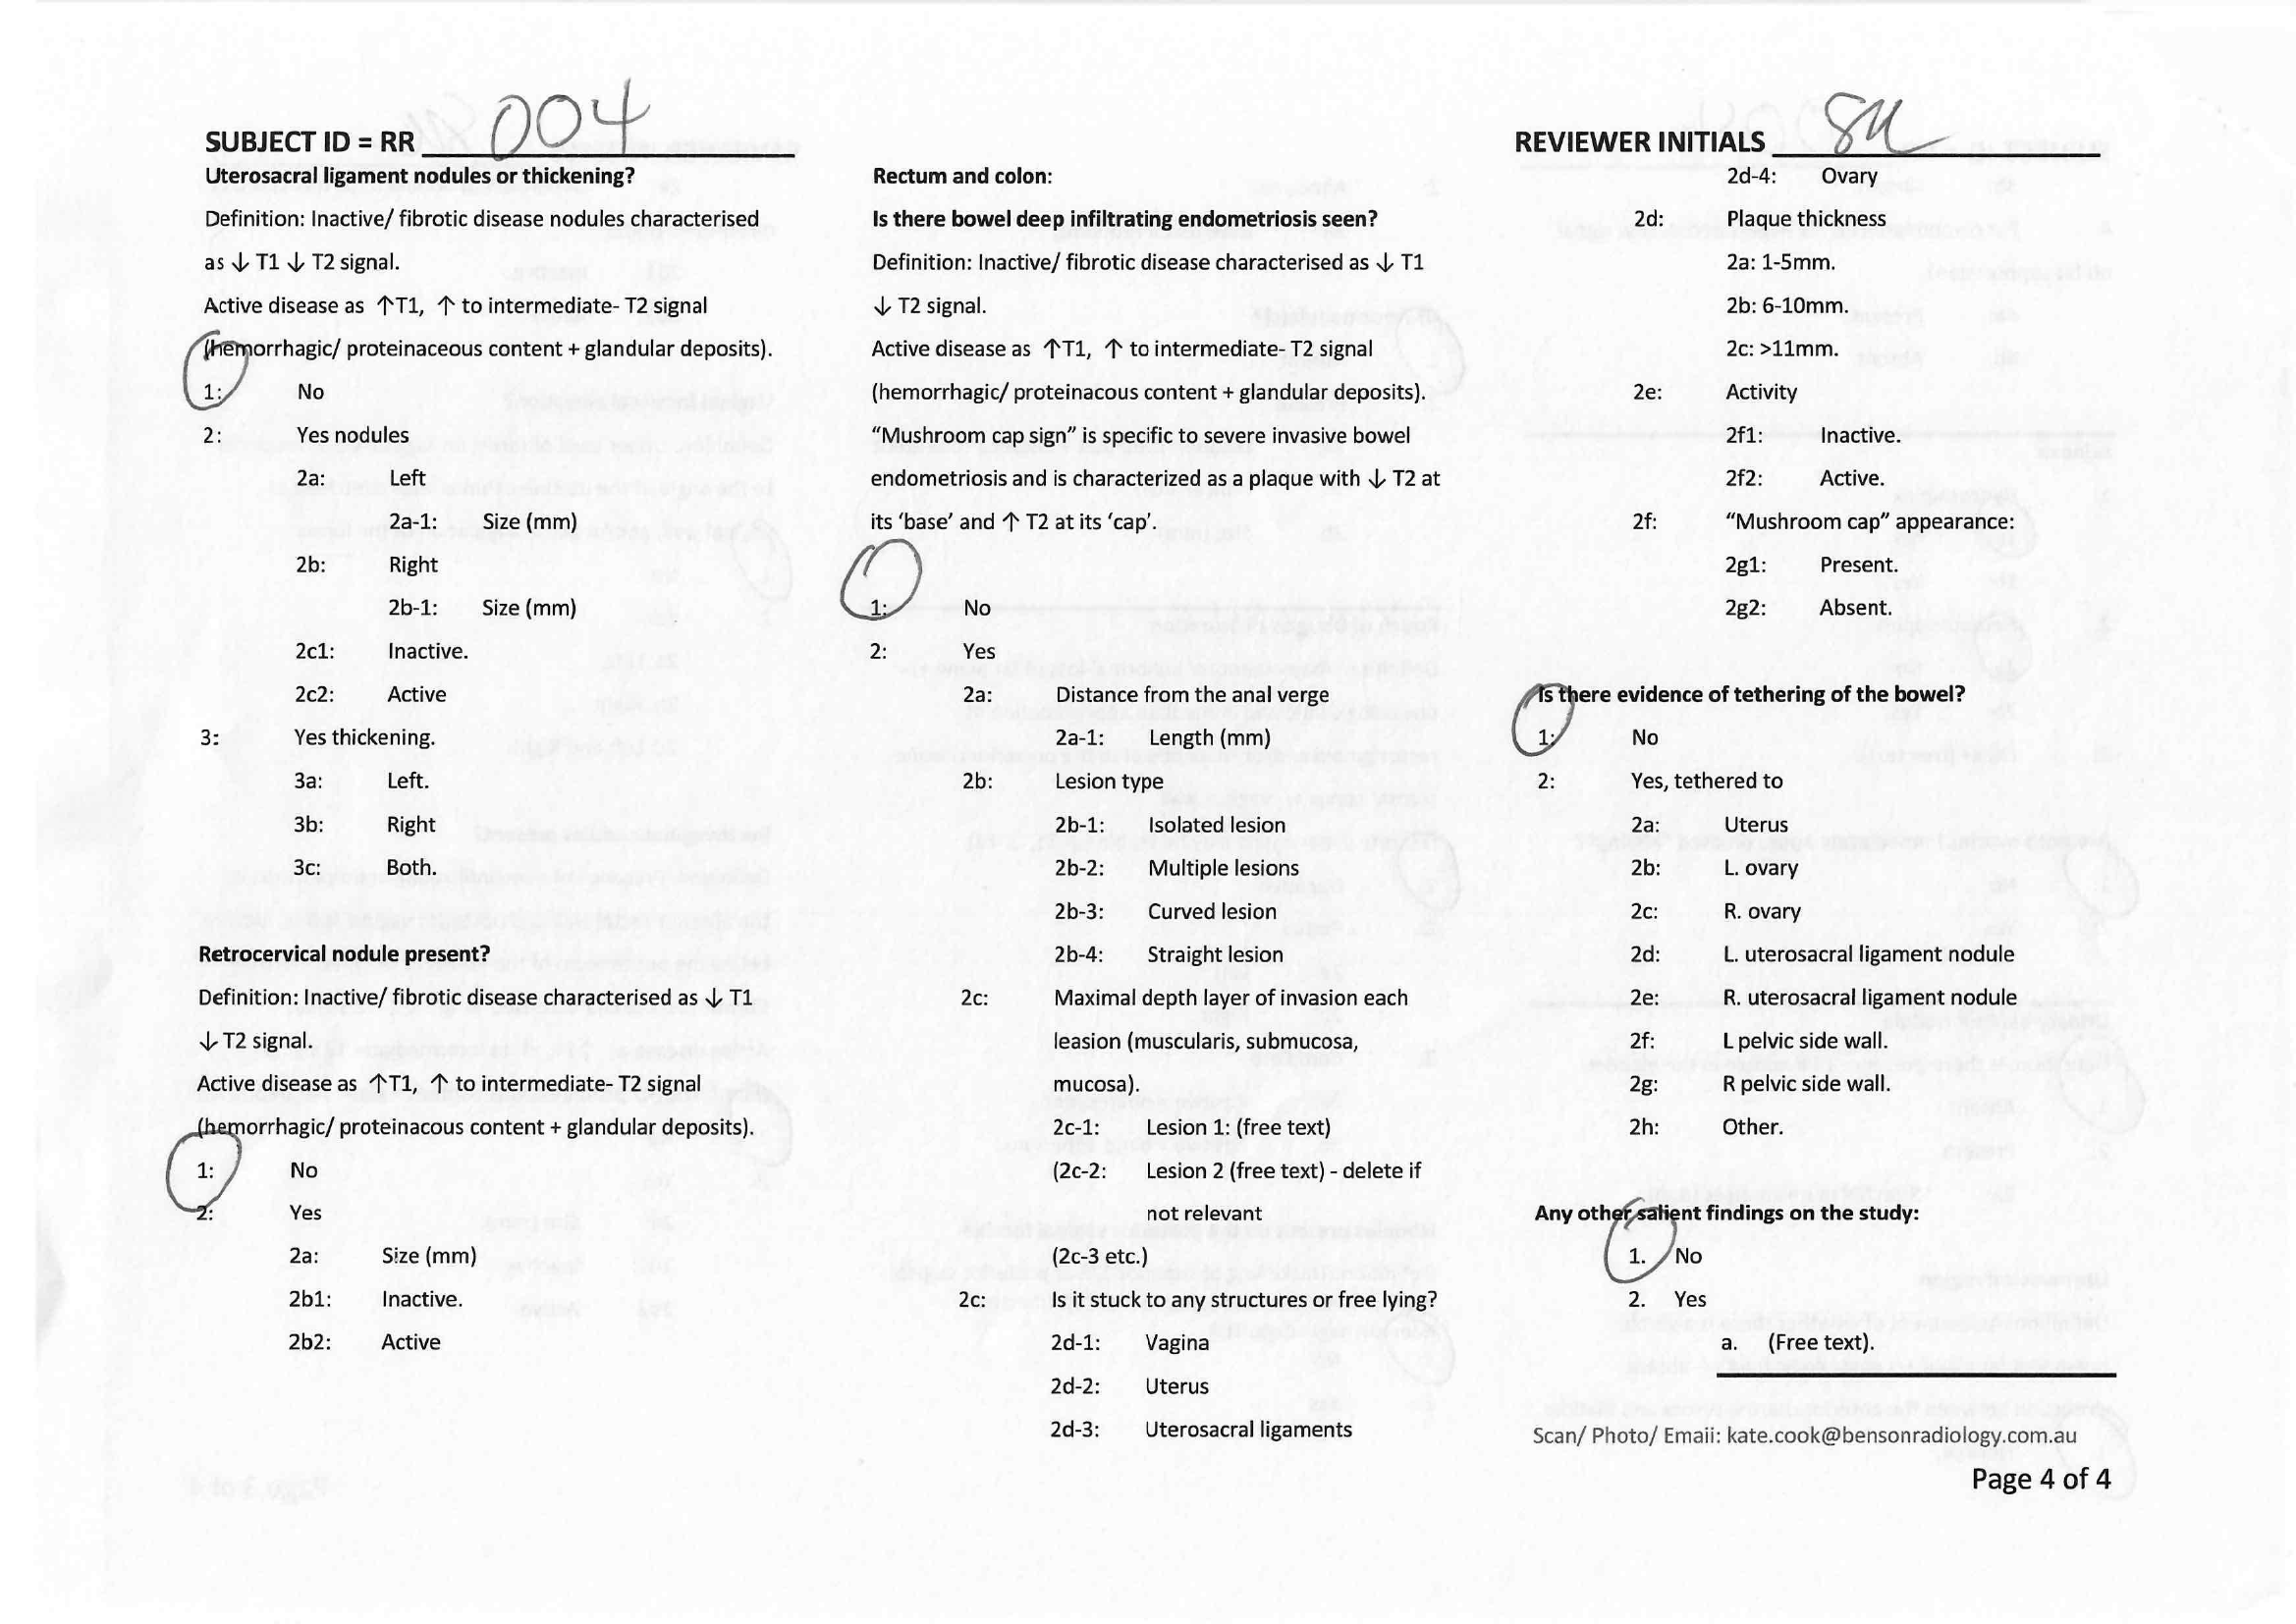 SUBJECT ID = RR 004
REVIEWER INITIALS SM
Uterosacral ligament nodules or thickening?
Definition: Inactive/ fibrotic disease nodules characterised
as ↓ T1 ↓ T2 signal.
Active disease as ↑T1, ↑ to intermediate- T2 signal
(hemorrhagic/ proteinaceous content + glandular deposits).
1: No
2: Yes nodules
2a: Left
2a-1: Size (mm)
2b: Right
2b-1: Size (mm)
2c1: Inactive.
2c2: Active
3: Yes thickening.
3a: Left.
3b: Right
3c: Both.
Retrocervical nodule present?
Definition: Inactive/ fibrotic disease characterised as ↓ T1
↓ T2 signal.
Active disease as ↑T1, ↑ to intermediate- T2 signal
(hemorrhagic/ proteinacous content + glandular deposits).
1: No
2: Yes
2a: Size (mm)
2b1: Inactive.
2b2: Active
Rectum and colon:
Is there bowel deep infiltrating endometriosis seen?
Definition: Inactive/ fibrotic disease characterised as ↓ T1
↓ T2 signal.
Active disease as ↑T1, ↑ to intermediate- T2 signal
(hemorrhagic/ proteinacous content + glandular deposits).
“Mushroom cap sign” is specific to severe invasive bowel
endometriosis and is characterized as a plaque with ↓ T2 at
its ‘base’ and ↑ T2 at its ‘cap’.
1: No
2: Yes
2a: Distance from the anal verge
2a-1: Length (mm)
2b: Lesion type
2b-1: Isolated lesion
2b-2: Multiple lesions
2b-3: Curved lesion
2b-4: Straight lesion
2c: Maximal depth layer of invasion each
leasion (muscularis, submucosa,
mucosa).
2c-1: Lesion 1: (free text)
(2c-2: Lesion 2 (free text) - delete if
not relevant
(2c-3 etc.)
2c: Is it stuck to any structures or free lying?
2d-1: Vagina
2d-2: Uterus
2d-3: Uterosacral ligaments
2d-4: Ovary
2d: Plaque thickness
2a: 1-5mm.
2b: 6-10mm.
2c: >11mm.
2e: Activity
2f1: Inactive.
2f2: Active.
2f: “Mushroom cap” appearance:
2g1: Present.
2g2: Absent.
Is there evidence of tethering of the bowel?
1: No
2: Yes, tethered to
2a: Uterus
2b: L. ovary
2c: R. ovary
2d: L. uterosacral ligament nodule
2e: R. uterosacral ligament nodule
2f: L pelvic side wall.
2g: R pelvic side wall.
2h: Other.
Any other salient findings on the study:
1. No
2. Yes
a. (Free text).
Scan/ Photo/ Email: kate.cook@bensonradiology.com.au
Page 4 of 4